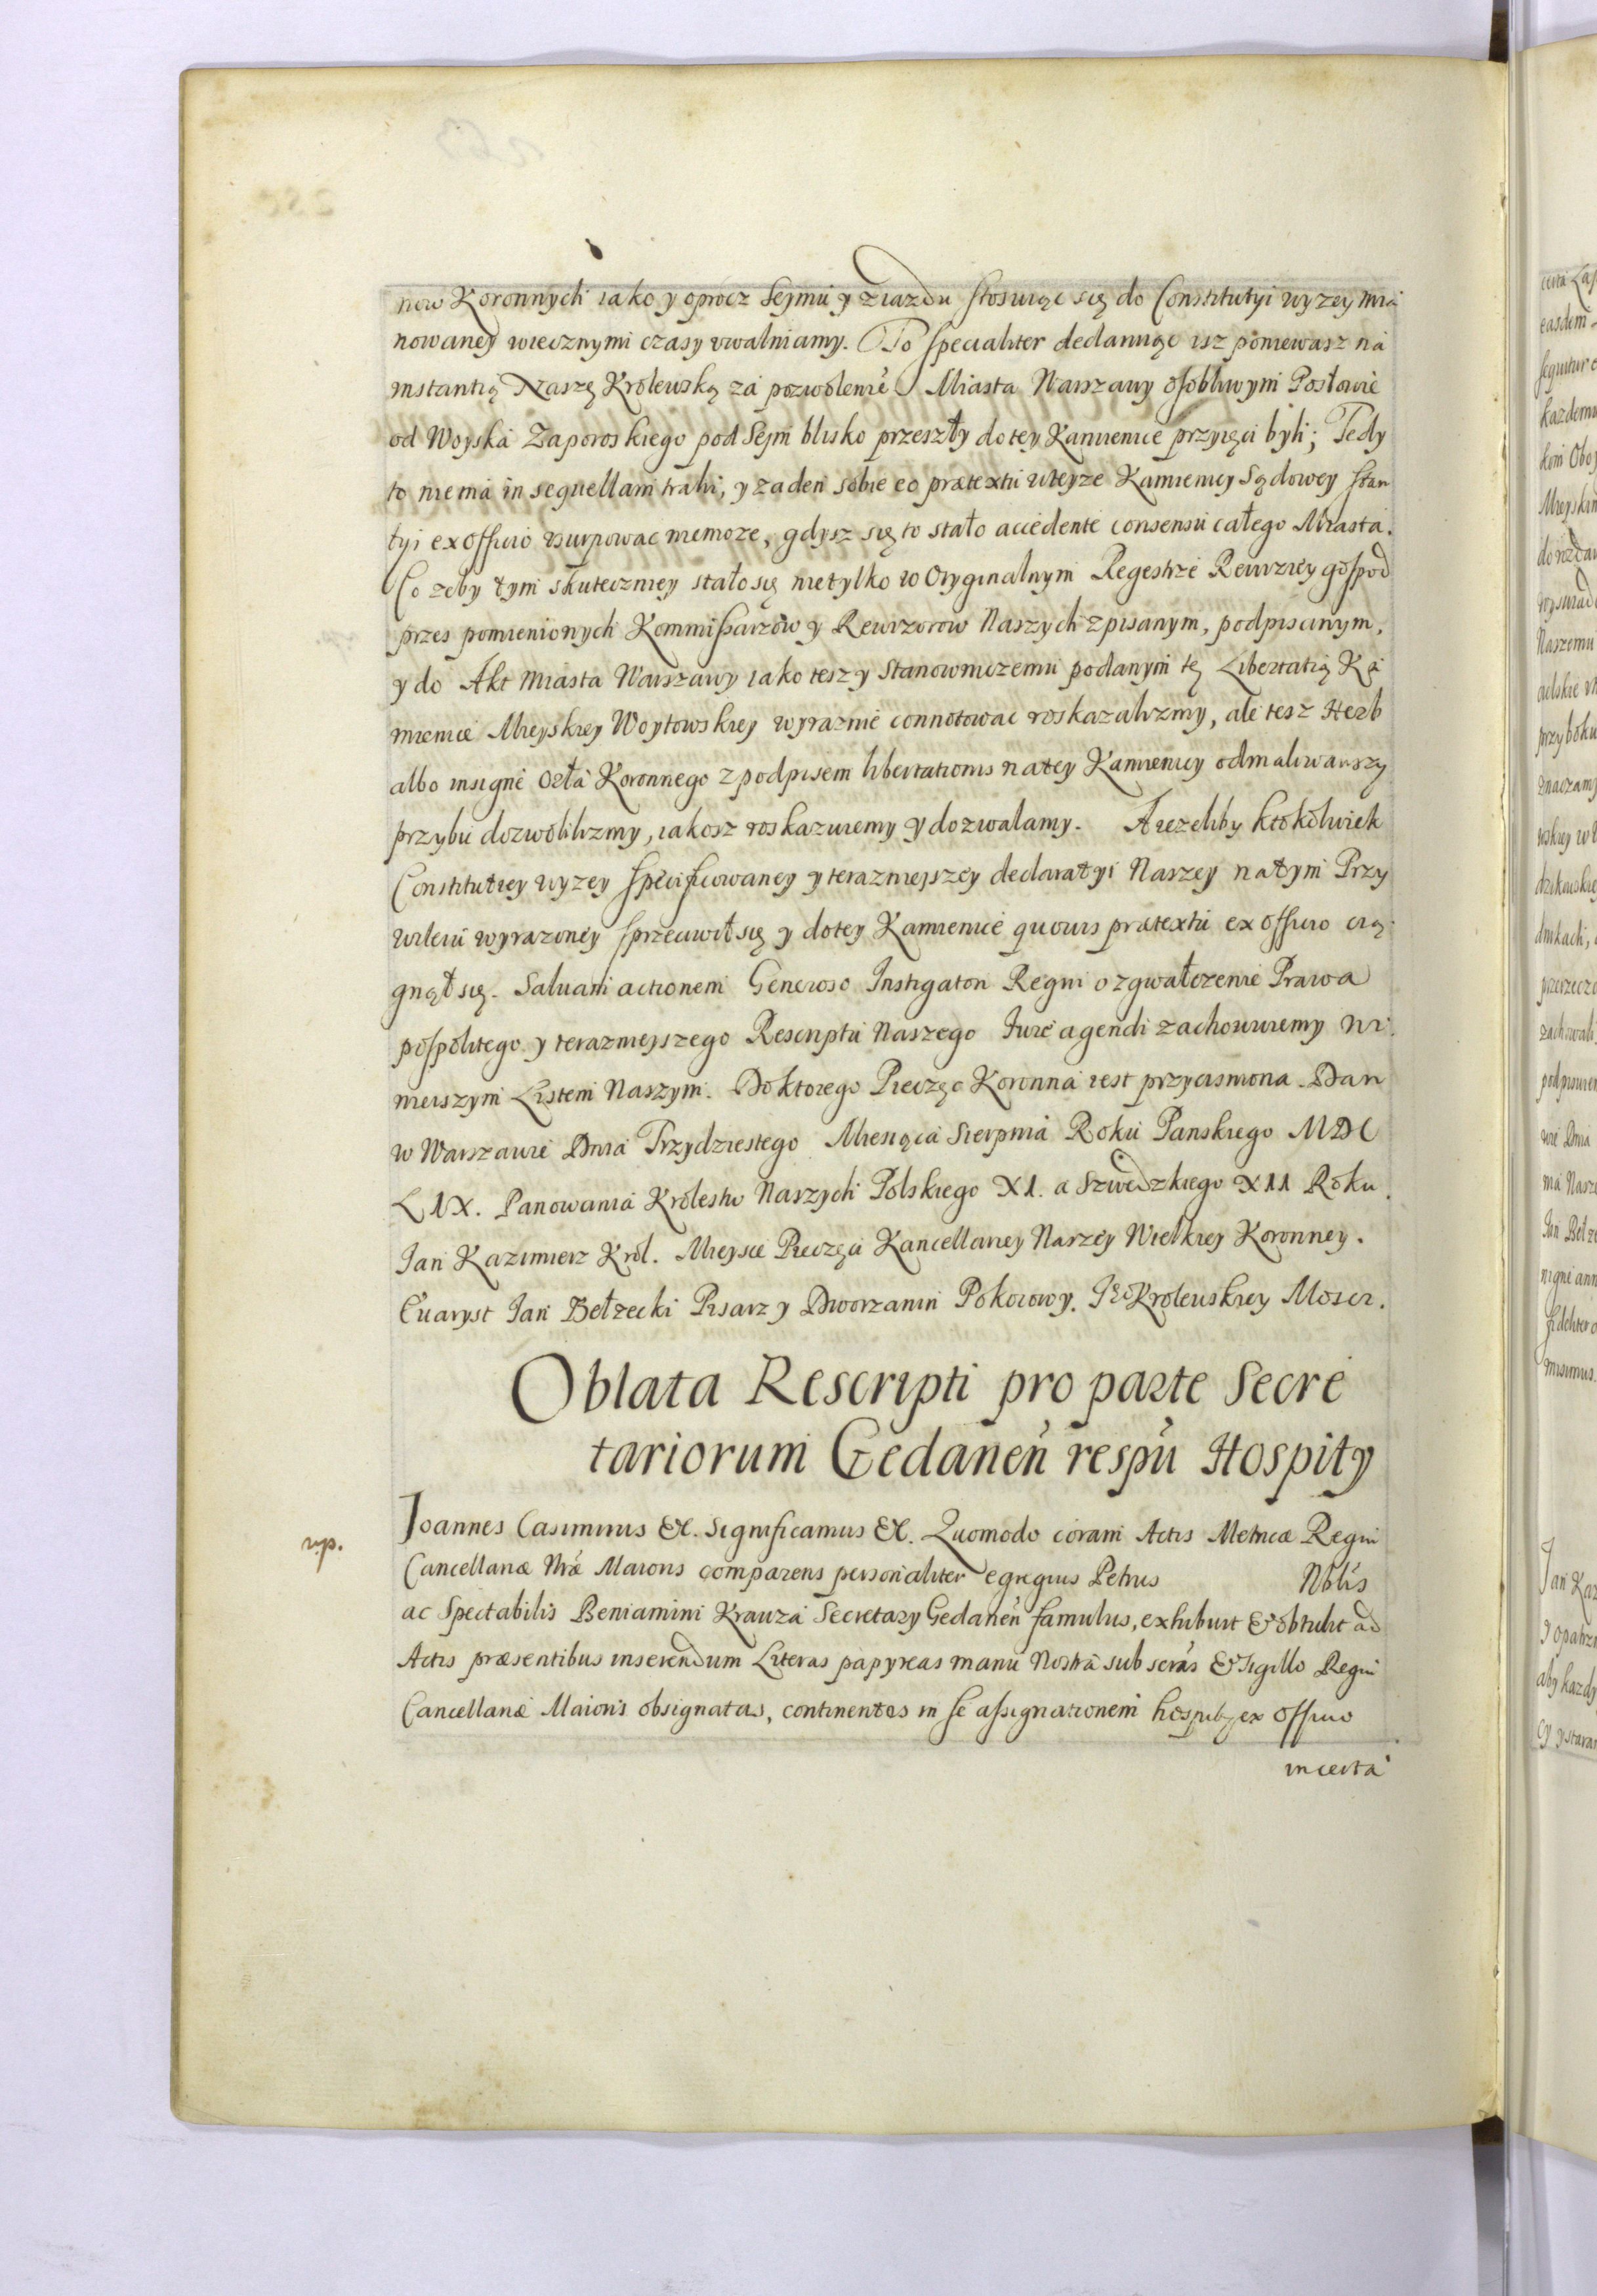 now Koronnych iako y oprocz Sejmu y Ziazdu stosuiąc się do Constitutyi wyzey mia
nowaney wiecznymi czasy uwalniamy. To specialiter declaruiąc isz poniewasz na
instantią Naszę Krolewską za pozwolenie Miasta Warszawy osobliwymi Posłowie
od Woyska Zaporoskiego pod Sejm blisko przeszły do tey Kamienice przyięci byli; Tedy
to niema in sequellam trahi, y zaden sobie eo prætextu wteyze Kamienicy Sądowey stan
tyi ex officio usurpowac niemoze, gdysz się to stało accedente consensu całego Miasta.
Co zeby tym skuteczniey stało się nietylko w Oryginalnym Regestrze Rewizyey gospod
przes pomienionych Kommissarzow y Rewizorow Naszych zpisanym, podpisanym,
y do Akt Miasta Warszawy iako tesz y Stanowniczemu podanym tę Libertatią Ka
mienice Mieyskiey Woytowskiey wyraznie connotowac roskazalizmy, ale tesz Herb
albo insigne Orła Koronnego z podpisem libertationis na tey Kamienicy odmaliwawszy
przybu dozwolilizmy, iakosz roskazuiemy y dozwalamy. A iezeliby ktokolwiek
Constitutiey wyzey specificowaney y terazniejszey declaratyi Naszey na tym Przy
wileiu wyrazoney sprzeciwił się y do tey Kamienice quovis prætextu ex officio cią
gnął się. Salvam actionem Generoso Instigatori Regni o zgwałczenie Prawa
pospolitego y terazniejszego Rescriptu Naszego Iure agendi zachowuiemy ni
nieiszym Listem Naszym. Do ktorego Pieczęc Koronna iest przycisniona. Dan
w Warszawie Dnia Trzydziestego Miesiąca Sierpnia Roku Panskiego MDC
LIX. Panowania Krolestw Naszych Polskiego XI. a Szwedzkiego XII Roku.
Jan Kazimierz Krol. Miejsce Pieczęci Kancellaryey Naszey Wielkiey Koronney.
Ewaryst Jan Bełzecki Pisarz y Dworzanin Pokoiowy. Jego Krolewskiey Mosci.
Oblata Rescripti pro parte Secre
tariorum Gedanen respu Hospity
Joannes Casimirus &c. Significamus &c. Quomodo coram Actis Metricæ Regni
Cancellariæ Nræ Maioris comparens personaliter egregius Petrus Nblis
ac Spectabilis Beniamini Krauza Secretary Gedanen famulus, exhibuit & obtulit ad
Actis præsentibus inserendum Literas papyreas manu Nostra subscras & Sigillo Regni
Cancellariæ Maioris obsignatas, continentes in se assignationem hospity ex officio
in certa